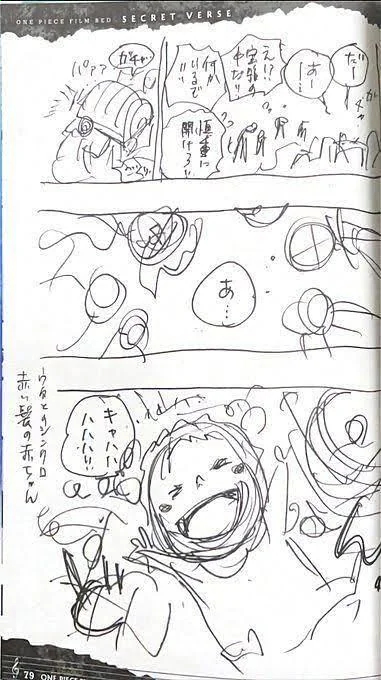 ONE PIECE FILM RED SECRET VERSE
だー
あー
ガチャ
えい!?
宝箱の
中だ!!
何か
いるぞ
慎重に
開けろ!!
ガチャ
パァァ
あ…
キャハハ
ハハハハ!!
ウタとのシンクロ
赤い髪の赤ちゃん
79 ONE PIECE